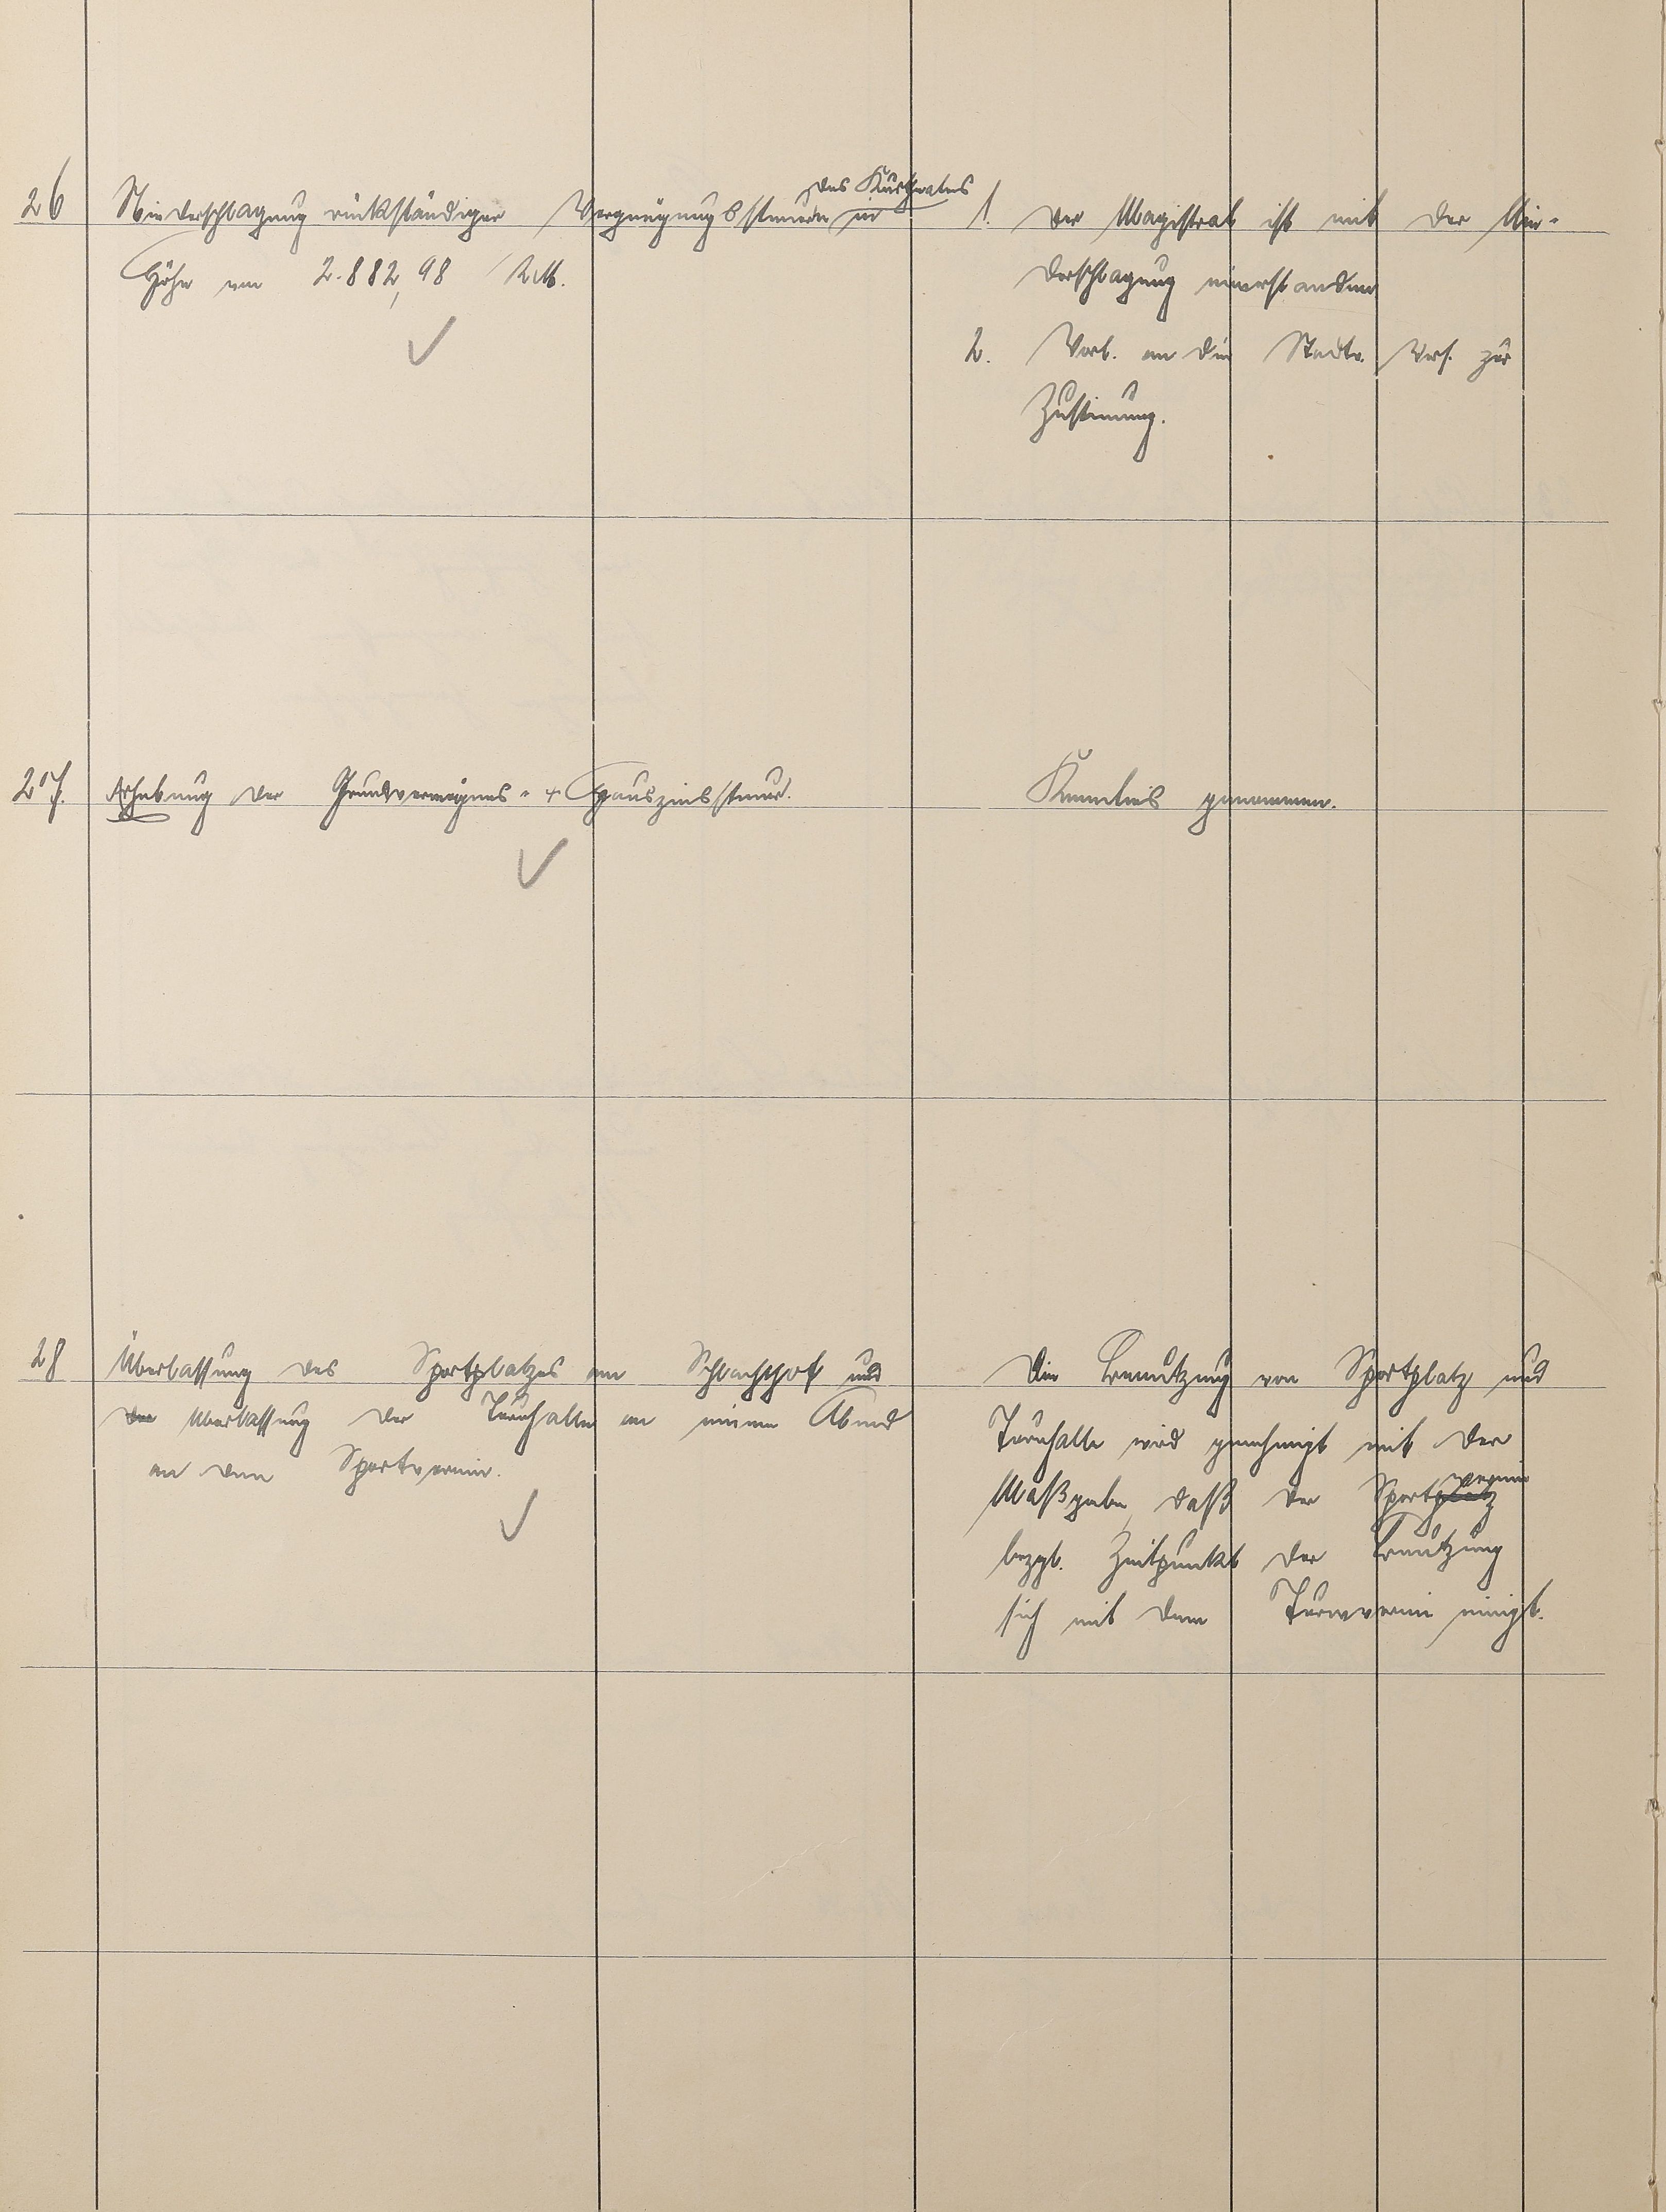 des Kurtheaters
26 Niederschlagung rückständiger Vergnügungssteuern in
Höhe von 2.882,98 RM.
1. Der Magistrat ist mit der Nie-
derschlagung einverstanden
2. Vorl. an die Stadtv. Vers. zur
Zustimmung.
27. Erhebung der Grundvermögens- + Hauszinssteuer.
Kenntnis genommen.
28 Überlassung des Sportplatzes am Schlachthof und
der Überlassung der Turnhalle an einem Abend
an den Sportverein.
Die Benutzung von Sportplatz und
Turnhalle wird genehmigt mit der
verein
Maßgabe, daß der Sportplatz
bezgl. Zeitpunkt der Benutzung
sich mit dem Turnverein einigt.